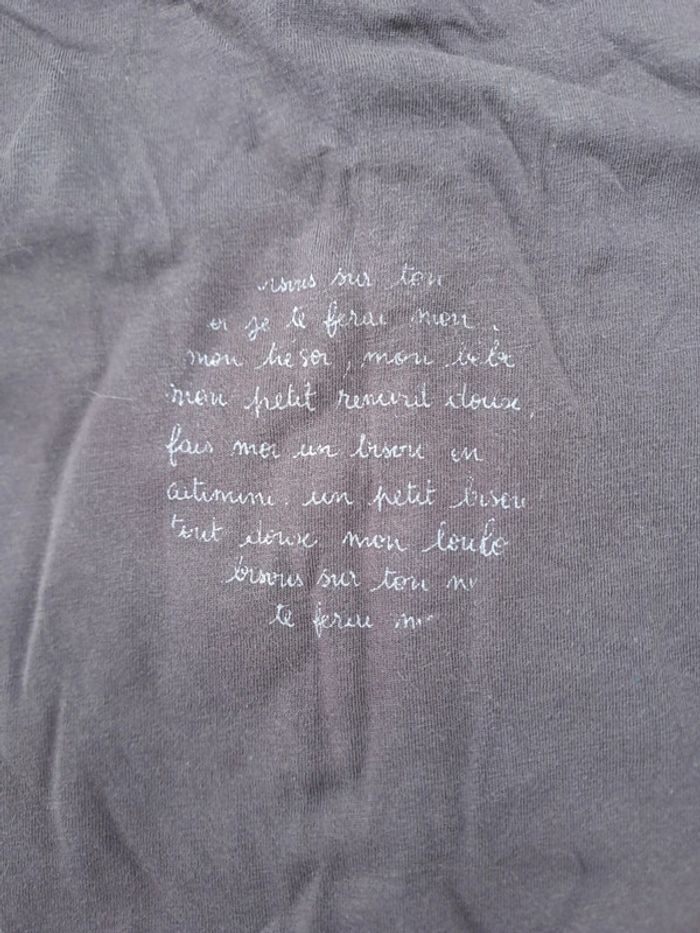 isous sur ton
er je te ferai mon
mon tresor, mon bebe
mon petit renard doux,
fais moi un bisou en
catimini. un petit bisou
tout doux mon loulo
bisous sur ton n
te ferai m